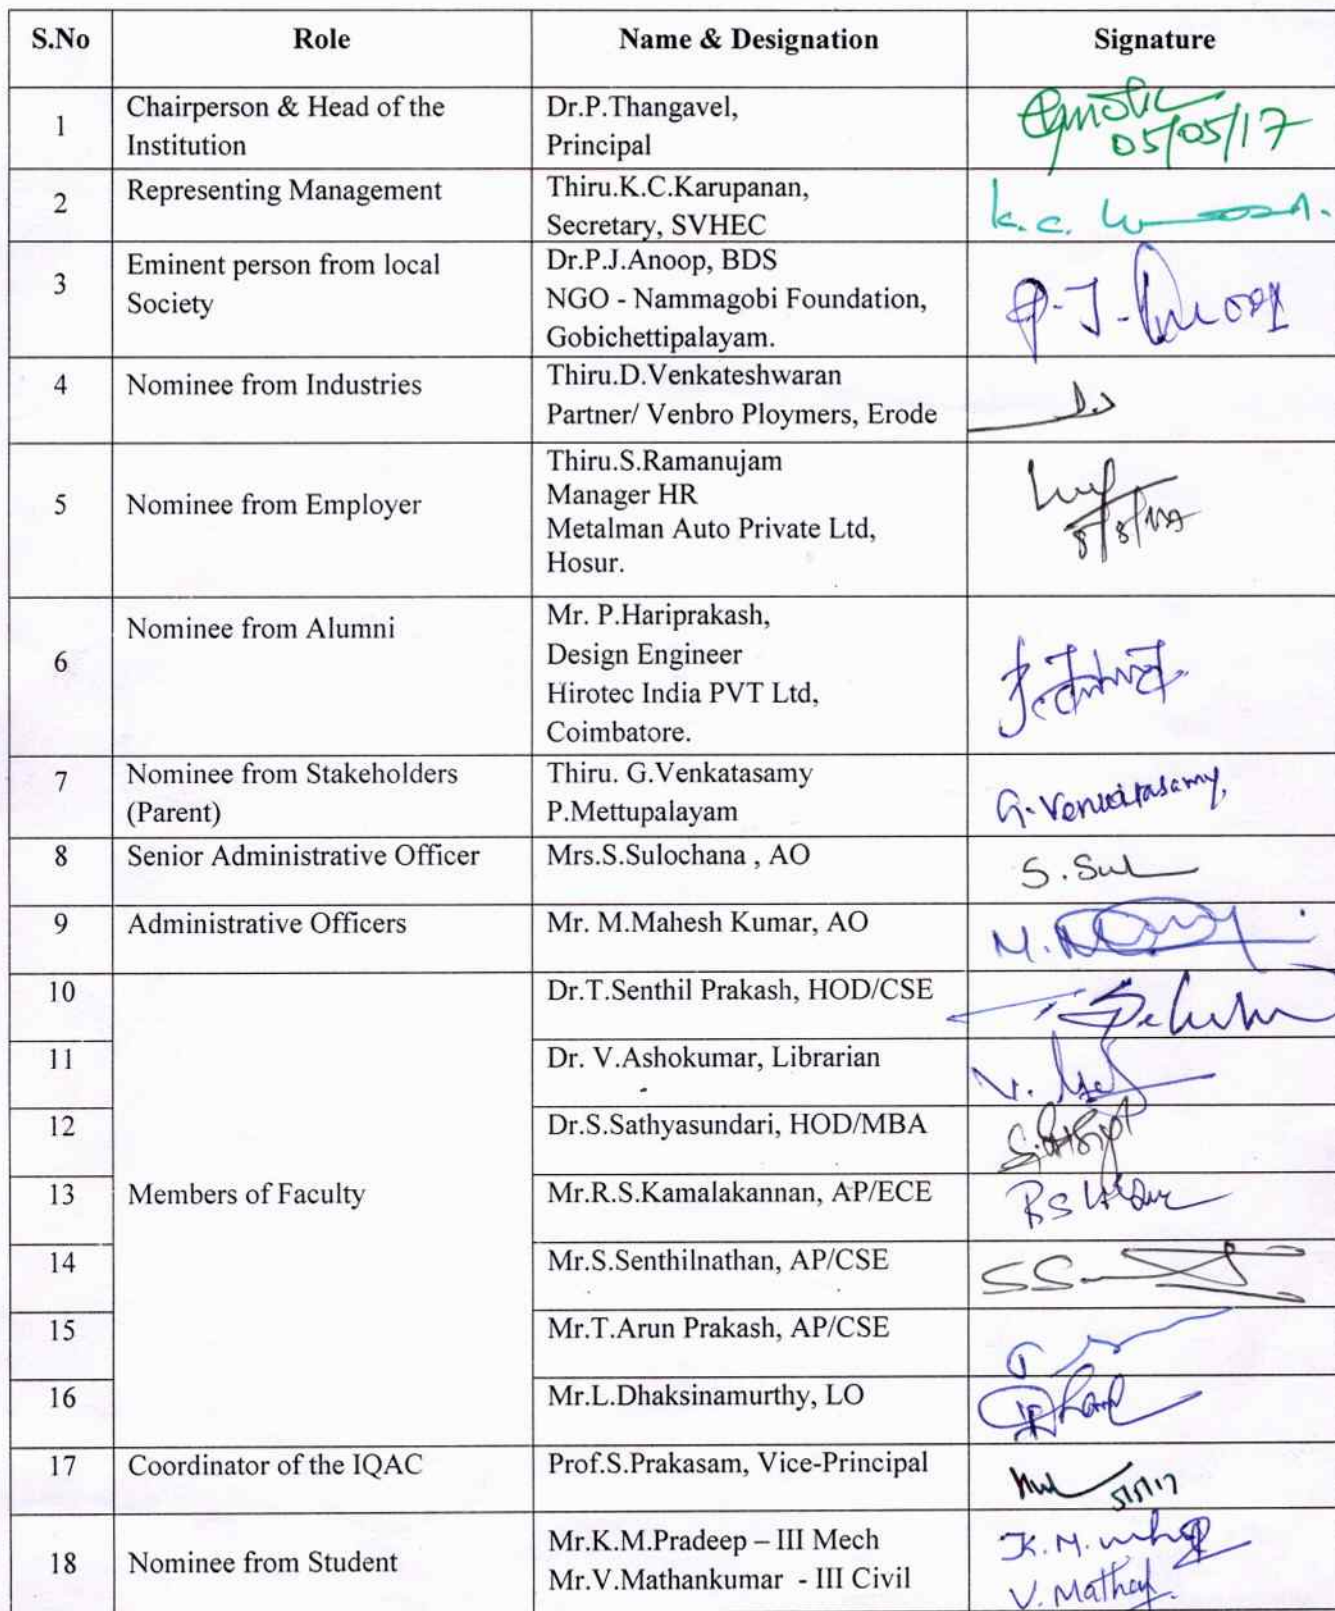 S.No Role Name & Designation Signature
1 Chairperson & Head of the Institution Dr.P.Thangavel, Principal 05/05/17
2 Representing Management Thiru.K.C.Karupanan, Secretary, SVHEC K.C.
3 Eminent person from local Society Dr.P.J.Anoop, BDS NGO - Nammagobi Foundation, Gobichettipalayam. P.J. Anoop
4 Nominee from Industries Thiru.D.Venkateshwaran Partner/ Venbro Ploymers, Erode
5 Nominee from Employer Thiru.S.Ramanujam Manager HR Metalman Auto Private Ltd, Hosur.
6 Nominee from Alumni Mr. P.Hariprakash, Design Engineer Hirotec India PVT Ltd, Coimbatore.
7 Nominee from Stakeholders (Parent) Thiru. G.Venkatasamy P.Mettupalayam G. Venkatasamy
8 Senior Administrative Officer Mrs.S.Sulochana , AO S. Sul
9 Administrative Officers Mr. M.Mahesh Kumar, AO M.
10 Dr.T.Senthil Prakash, HOD/CSE
11 Dr. V.Ashokumar, Librarian V.
12 Dr.S.Sathyasundari, HOD/MBA
13 Members of Faculty Mr.R.S.Kamalakannan, AP/ECE
14 Mr.S.Senthilnathan, AP/CSE
15 Mr.T.Arun Prakash, AP/CSE
16 Mr.L.Dhaksinamurthy, LO
17 Coordinator of the IQAC Prof.S.Prakasam, Vice-Principal 5/5/17
18 Nominee from Student Mr.K.M.Pradeep – III Mech Mr.V.Mathankumar - III Civil K.M. V. Mathan